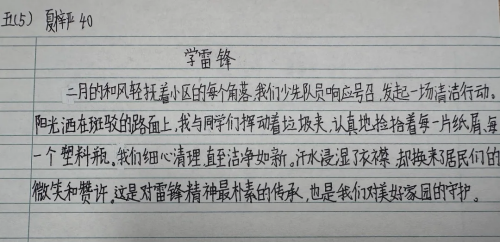 五(5) 夏梓严 40
学雷锋
二月的和风轻抚着小区的每个角落,我们少先队员响应号召,发起一场清洁行动。
阳光洒在斑驳的路面上,我与同学们挥动着垃圾夹,认真地捡拾着每一片纸屑、每
一个塑料瓶。我们细心清理,直至洁净如新。汗水浸湿了衣襟,却换来了居民们的
微笑和赞许。这是对雷锋精神最朴素的传承,也是我们对美好家园的守护。